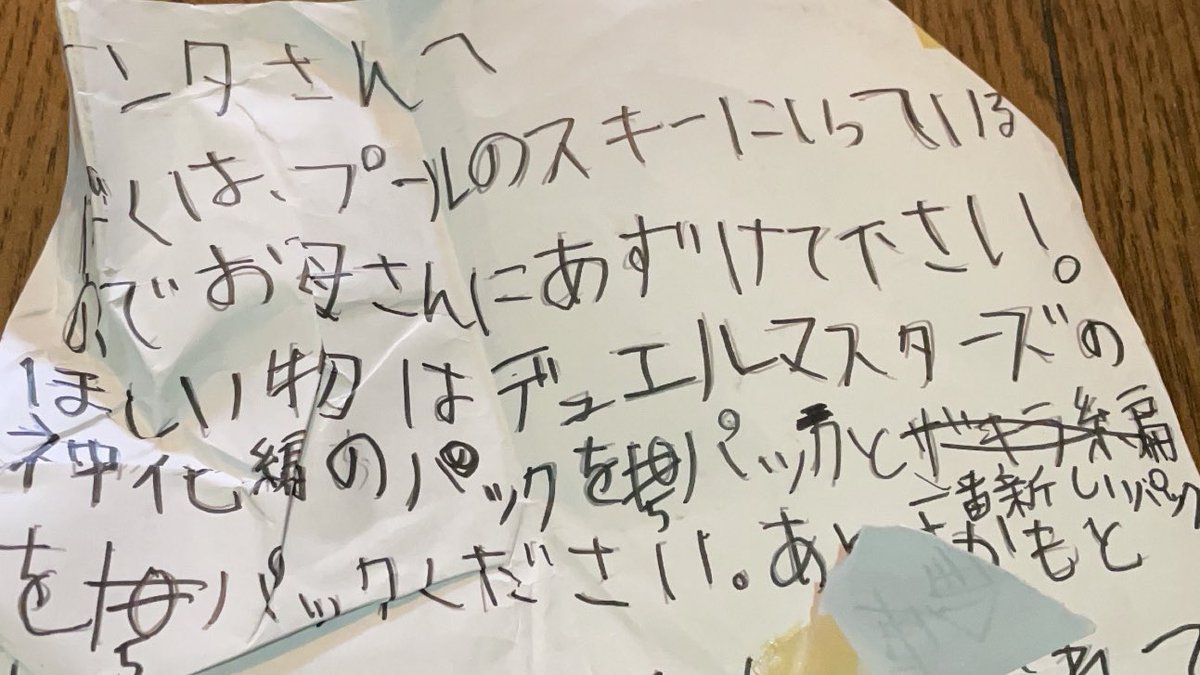 ンタさんへ
ぼくは、プールのスキーにいっている
のでお母さんにあずけて下さい。
ほしい物はデュエルマスターズの
神化編のパックを5パックと
一番新しいパック
を5パックください。あ さかもと